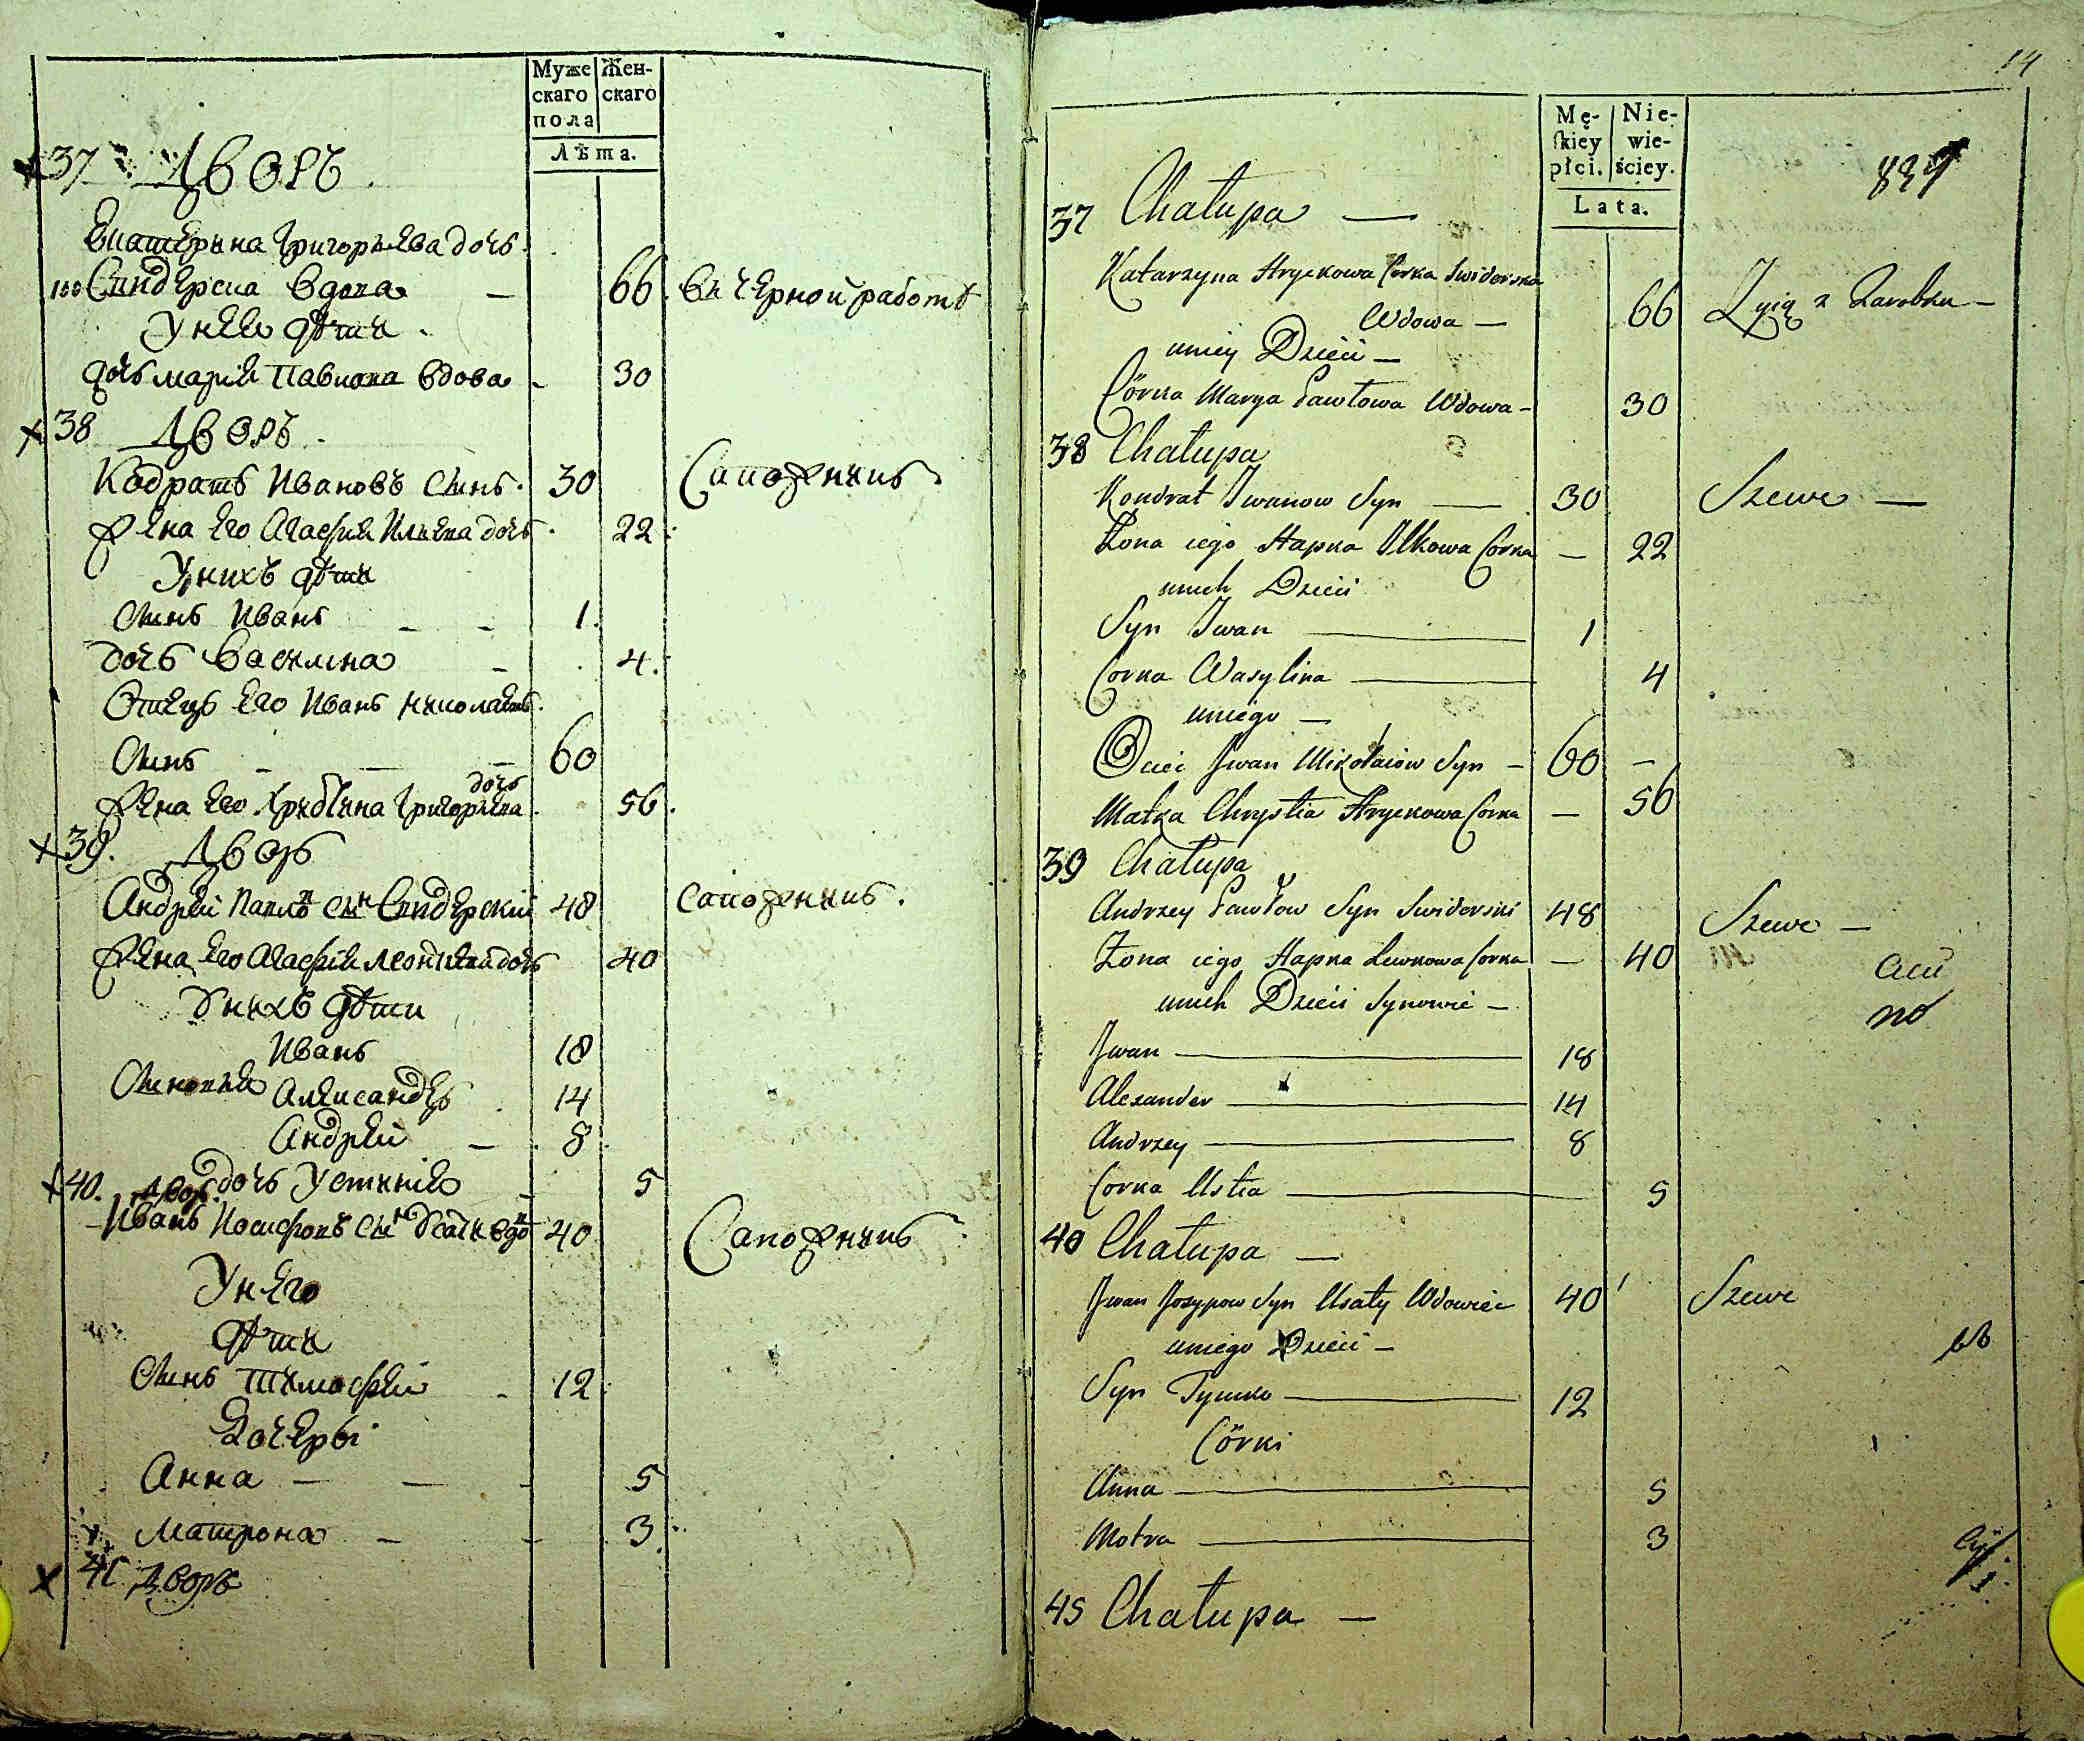 Муже
скаго
пола
Жен-
скаго
Лѣта.
37 Дворъ
Екатерина Григорьева дочь
Свидерска вдова — 66 въ черной работѣ
У нея дѣти
дочь Марія Павлова вдова - 30
38 Дворъ
Кодратъ Ивановъ сынъ 30 Сапожникъ
жена его Агафия Ильина дочь 22
У нихъ дѣти
Сынъ Иванъ - - 1
дочь Василина - 4
Отецъ его Иванъ Николаевъ
Сынъ - — — 60
дочь
жена его Христина Григорьева 56
39. Дворъ
Андрей Павловъ сынъ Свидерскій 48 сапожникъ.
жена его Агафия дочь 40
У нихъ дѣти
Иванъ 18
Сыновья Александръ 14
Андрей — 8
дочь Устинія - 5
40. Дворъ
Иванъ Иосифовъ сынъ 40 Сапожникъ
У него
дѣти
Сынъ Тимофей - 12
Дочери
Анна — — - 5
Матрона — - 3
41 Дворъ
14
Mę-
skiey
płci.
Nie-
wie-
ściey.
Lata.
837
37 Chałupa —
Katarzyna Hryckowa Corka Swiderska
Wdowa — 66 Zyią z Zarobku —
uniey Dzieci —
Córka Marya Pawłowa Wdowa - 30
38 Chałupa
Kondrat Jwanow Syn — 30 Szewc —
Żona iego Hapka Ilkowa Corka — 22
unich Dzieci
Syn Jwan — 1
Corka Wasylina — 4
uniego —
Ociec Jwan Mikołaiow Syn - 60 -
Matka Chrystia Hryckowa Corka — 56
39 Chałupa
Andrzey Pawłow Syn Swiderski 48 Szewc —
Żona iego Hapka Lewkowa Corka — 40
unich Dzieci Synowie —
Jwan — 18
Alexander — 14
Andrzey — 8
Corka Ustia — 5
40 Chałupa —
Jwan Jozypow Syn Usaty Wdowiec 40 Szewc
uniego Dzieci —
Syn Tymko — 12
Córki
Anna — 5
Motra — 3
45 Chałupa —